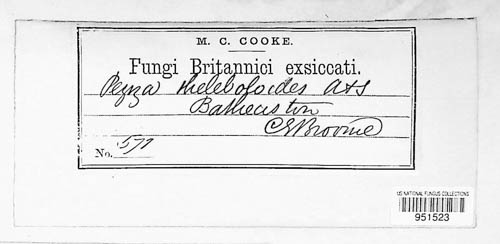 M. C. COOKE.
Fungi Britannici exsiccati.
Peziza theleboloides A&S
Batheaston
CEBroome
No. 571
US NATIONAL FUNGUS COLLECTIONS
951523